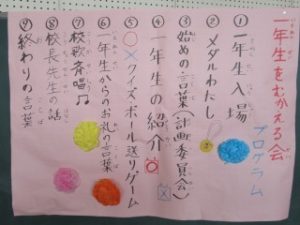 一年生をむかえる会
プログラム
①一年生入場
②メダルわたし
③始めの言葉(計画委員会)
④一年生の紹介
⑤○×クイズ・ボール送りゲーム
⑥一年生からのお礼の言葉
⑦校歌斉唱♫
⑧校長先生の話
⑨終わりの言葉